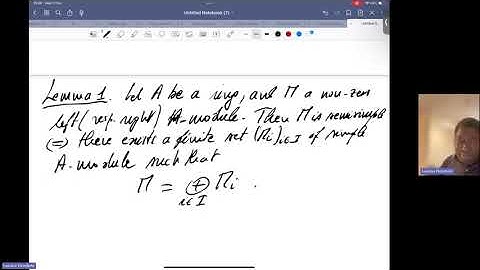 Untitled Notebook (1)
Lemma 1. Let A be a ring, and M a non-zero
left (resp. right) A-module. Then M is semisimple
(=) there exists a finite set (Mi)i∈I of simple
A-module such that
M = ⊕ Mi .
i∈I